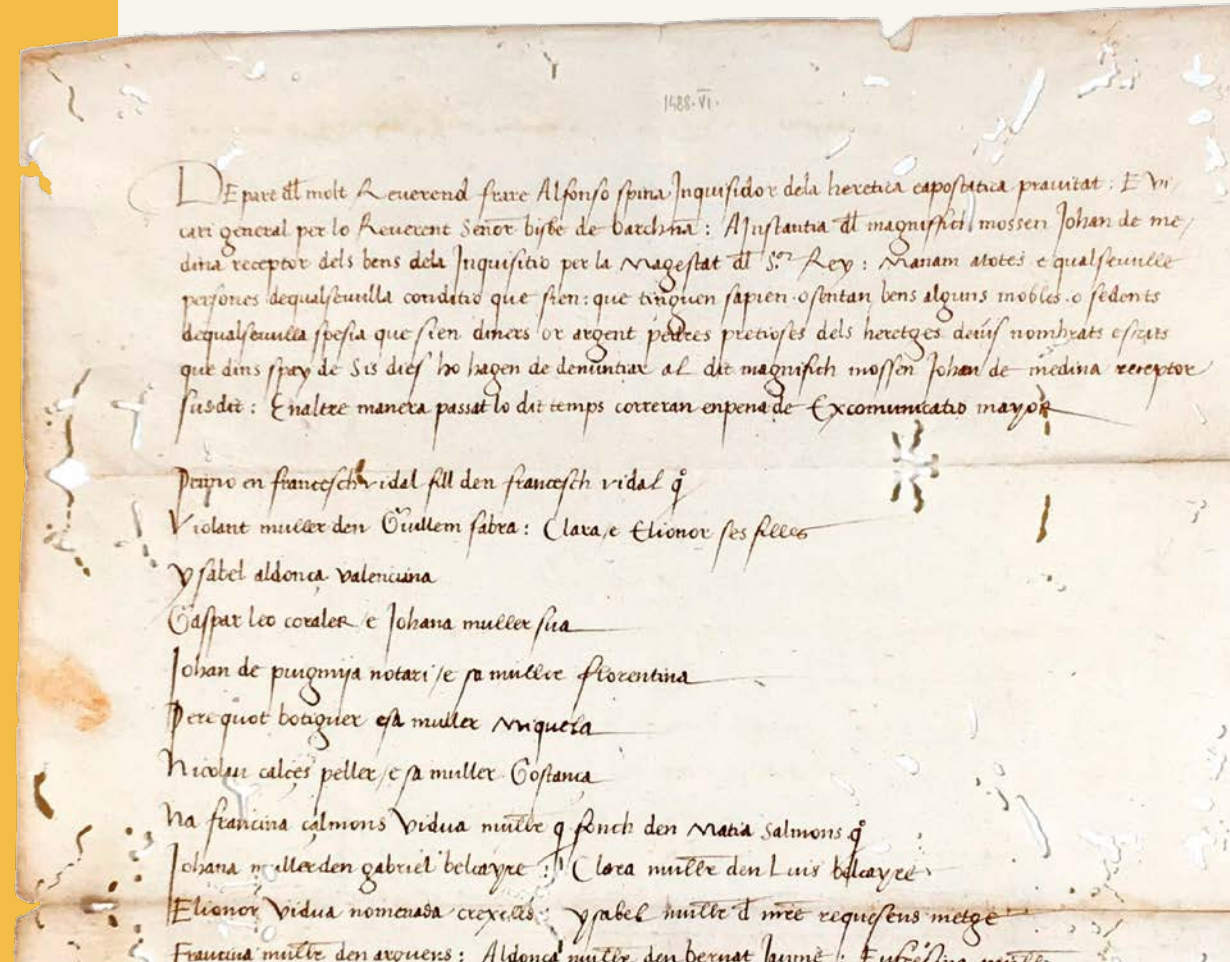 1488·VI·
DE part dl molt Reuerend frare Alfonso spina Inquisidor dela heretica eapostatica prauitat : E vi-
cari general per lo Reuerent Señor bisbe de barchna : A Instantia dl magniffich mossen Johan de me/
dina receptor dels bens dela Inquisitio per la Magestat dl S.or Rey : Manam atotes e qualseuulle
persones dequalseuulla conditio que sien : que tinguen sapien o sentan bens alguns mobles o sedents
dequalseuulla spesia que sien diners or argent pedres pretioses dels heretges deuis nombrats escrits
que dins spay de Sis dies ho hagen de denuntiar al dit magnifich mossen Johan de medina receptor
susdit : Enaltre manera passat lo dit temps correran enpena de Excomunicatio mayor
Primo en francesch vidal fill den francesch vidal qo
Violant muller den Guillem sabra : Clara e Elionor ses filles
ysabel aldonça valenciana
Gaspar leo coraler e Johana muller sua
Johan de puigmija notari /e sa muller florentina
Pere quot botiguer e sa muller Miquela
Nicolau calçes peller /e sa muller Gostança
Na francina çalmons vidua mullr q fonch den Matia Salmons qo
Johana muller den gabriel belcayre : Clara mullr den Luis belcayre
Elionor vidua nomenada crexells : ysabel mullr d mre requesens metge
Francina mullr den : Aldonça mullr den bernat Jaume :